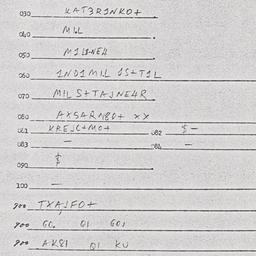 030 KAT3R1NKO+
040 MIL
050
060 1ND1MIL 15+T1L
070 MILS+TAJNE4R
080 AXSARN80+ XX
081 KREJC+MO+ 082 $-
083 -
090 $
100 -
900 TXAJFO+
900 GO, O1 GO1
900 AK81 O1 KU